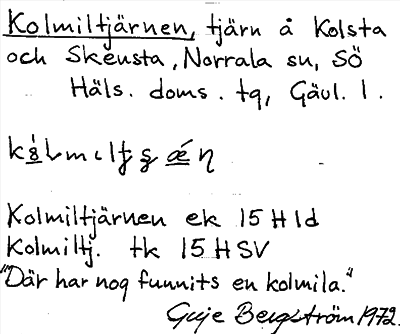 Kolmiltjärnen, tjärn å Kolsta
och Skensta, Norrala sn, SÖ
Häls. doms. tg, Gävl. l.
Kolmiltjärnen ek 15 H 1d
Kolmiltj. tk 15 H SV
"Där har nog funnits en kolmila."
Guje Bergström 1972.